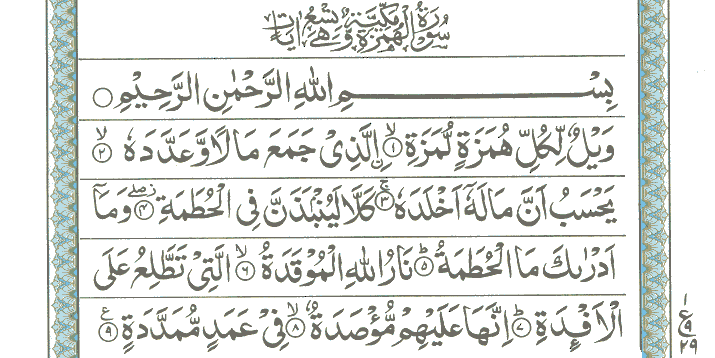 سُوْرَةُ الْهُمَزَةِ مَكِّيَّةٌ وَّهِيَ تِسْعُ اٰيَاتٍ
بِسْمِ اللّٰهِ الرَّحْمٰنِ الرَّحِيْمِ ○
وَيْلٌ لِّكُلِّ هُمَزَةٍ لُّمَزَةِ ۙ﴿۱﴾ اۨلَّذِيْ جَمَعَ مَالًا وَّعَدَّدَهٗ ۙ﴿۲﴾
يَحْسَبُ اَنَّ مَالَهٗۤ اَخْلَدَهٗ ۚ﴿۳﴾ كَلَّا لَيُنْۢبَذَنَّ فِي الْحُطَمَةِ ۖ﴿۴﴾ وَمَاۤ
اَدْرٰىكَ مَا الْحُطَمَةُ ؕ﴿۵﴾ نَارُ اللّٰهِ الْمُوْقَدَةُ ۙ﴿۶﴾ الَّتِيْ تَطَّلِعُ عَلَى
الْاَفْـِٕدَةِ ؕ﴿۷﴾ اِنَّهَا عَلَيْهِمْ مُّؤْصَدَةٌ ۙ﴿۸﴾ فِيْ عَمَدٍ مُّمَدَّدَةٍ ﴿۹﴾ ع
۱
ع ۹
۲۹